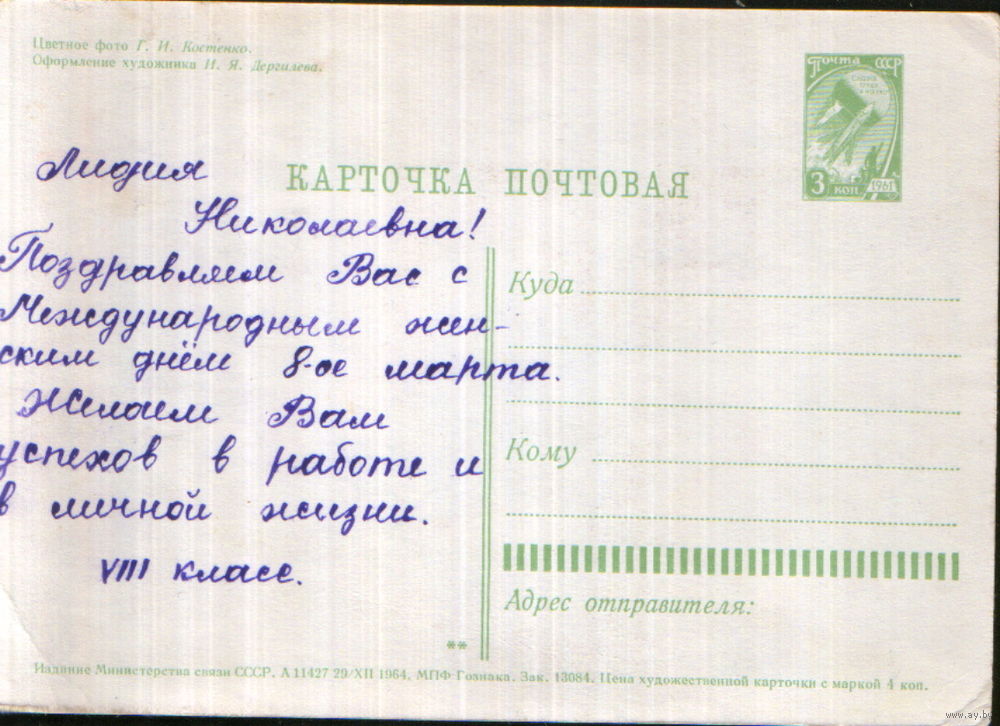 Цветное фото Г. И. Костенко.
Оформление художника И. Я. Дергилева.
Почта СССР
3 коп. 1961
КАРТОЧКА ПОЧТОВАЯ
Лидия
Николаевна!
Поздравляем Вас с
Международным жен-
ским днём 8-ое марта.
Желаем Вам
успехов в работе и
в личной жизни.
VIII класс.
Куда
Кому
Адрес отправителя:
**
Издание Министерства связи СССР. А 11427 29/XII 1964. МПФ Гознака. Зак. 13084. Цена художественной карточки с маркой 4 коп.
www.ay.by